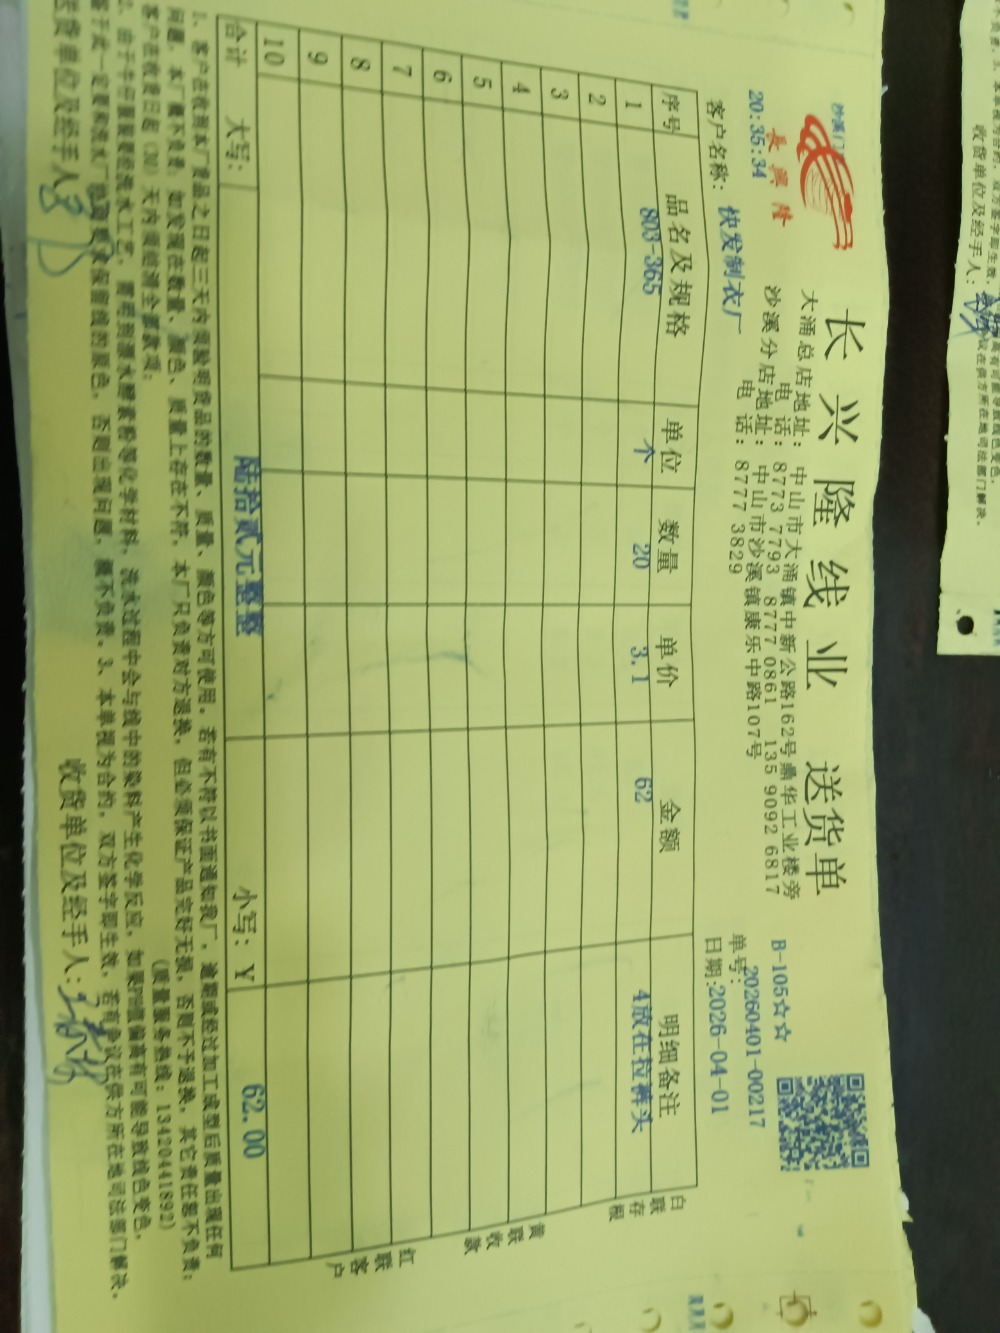 长兴隆线业 送货单
長興隆
B-105☆☆
大涌总店地址：中山市大涌镇中新公路162号鼎华工业楼旁
电 话：8773 7793 8777 0861 135 9092 6817
沙溪分店地址：中山市沙溪镇康乐中路107号
电 话：8777 3829
单号：20260401-00217
20:35:34
日期：2026-04-01
客户名称：快发制衣厂
序号 品名及规格 单位 数量 单价 金额 明细备注
1 803-365 个 20 3.1 62 4放在拉裤头
2
3
4
5
6
7
8
9
10
合计 大写：陆拾贰元整整 小写：¥ 62.00
白联存根
黄联收款
红联客户
1、客户在收到本厂货品之日起三天内须验明货品的数量、质量、颜色等方可使用。若有不符以书面通知我厂，逾期或经过加工成型后质量出现任何
问题，本厂概不负责，如发现在数量、颜色、质量上存在不符，本厂只负责对方退换，但必须保证产品完好无损，否则不予退换，其它责任恕不负责；
客户在收货日起（30）天内须给清全部款项； （质量服务热线：13420441892）
2、由于牛仔服装要经洗水工艺，需用到漂水酵素粉等化学材料，洗水过程中会与线中的染料产生化学反应，如果PH值偏高有可能导致线色变色，
鉴于此一定要和洗水厂 保留线的原色，否则出现问题，概不负责。3、本单视为合约，双方签字即生效，若有争议在供方所在地司法部门解决。
送货单位及经手人：
收货单位及经手人：
收货单位及经手人：